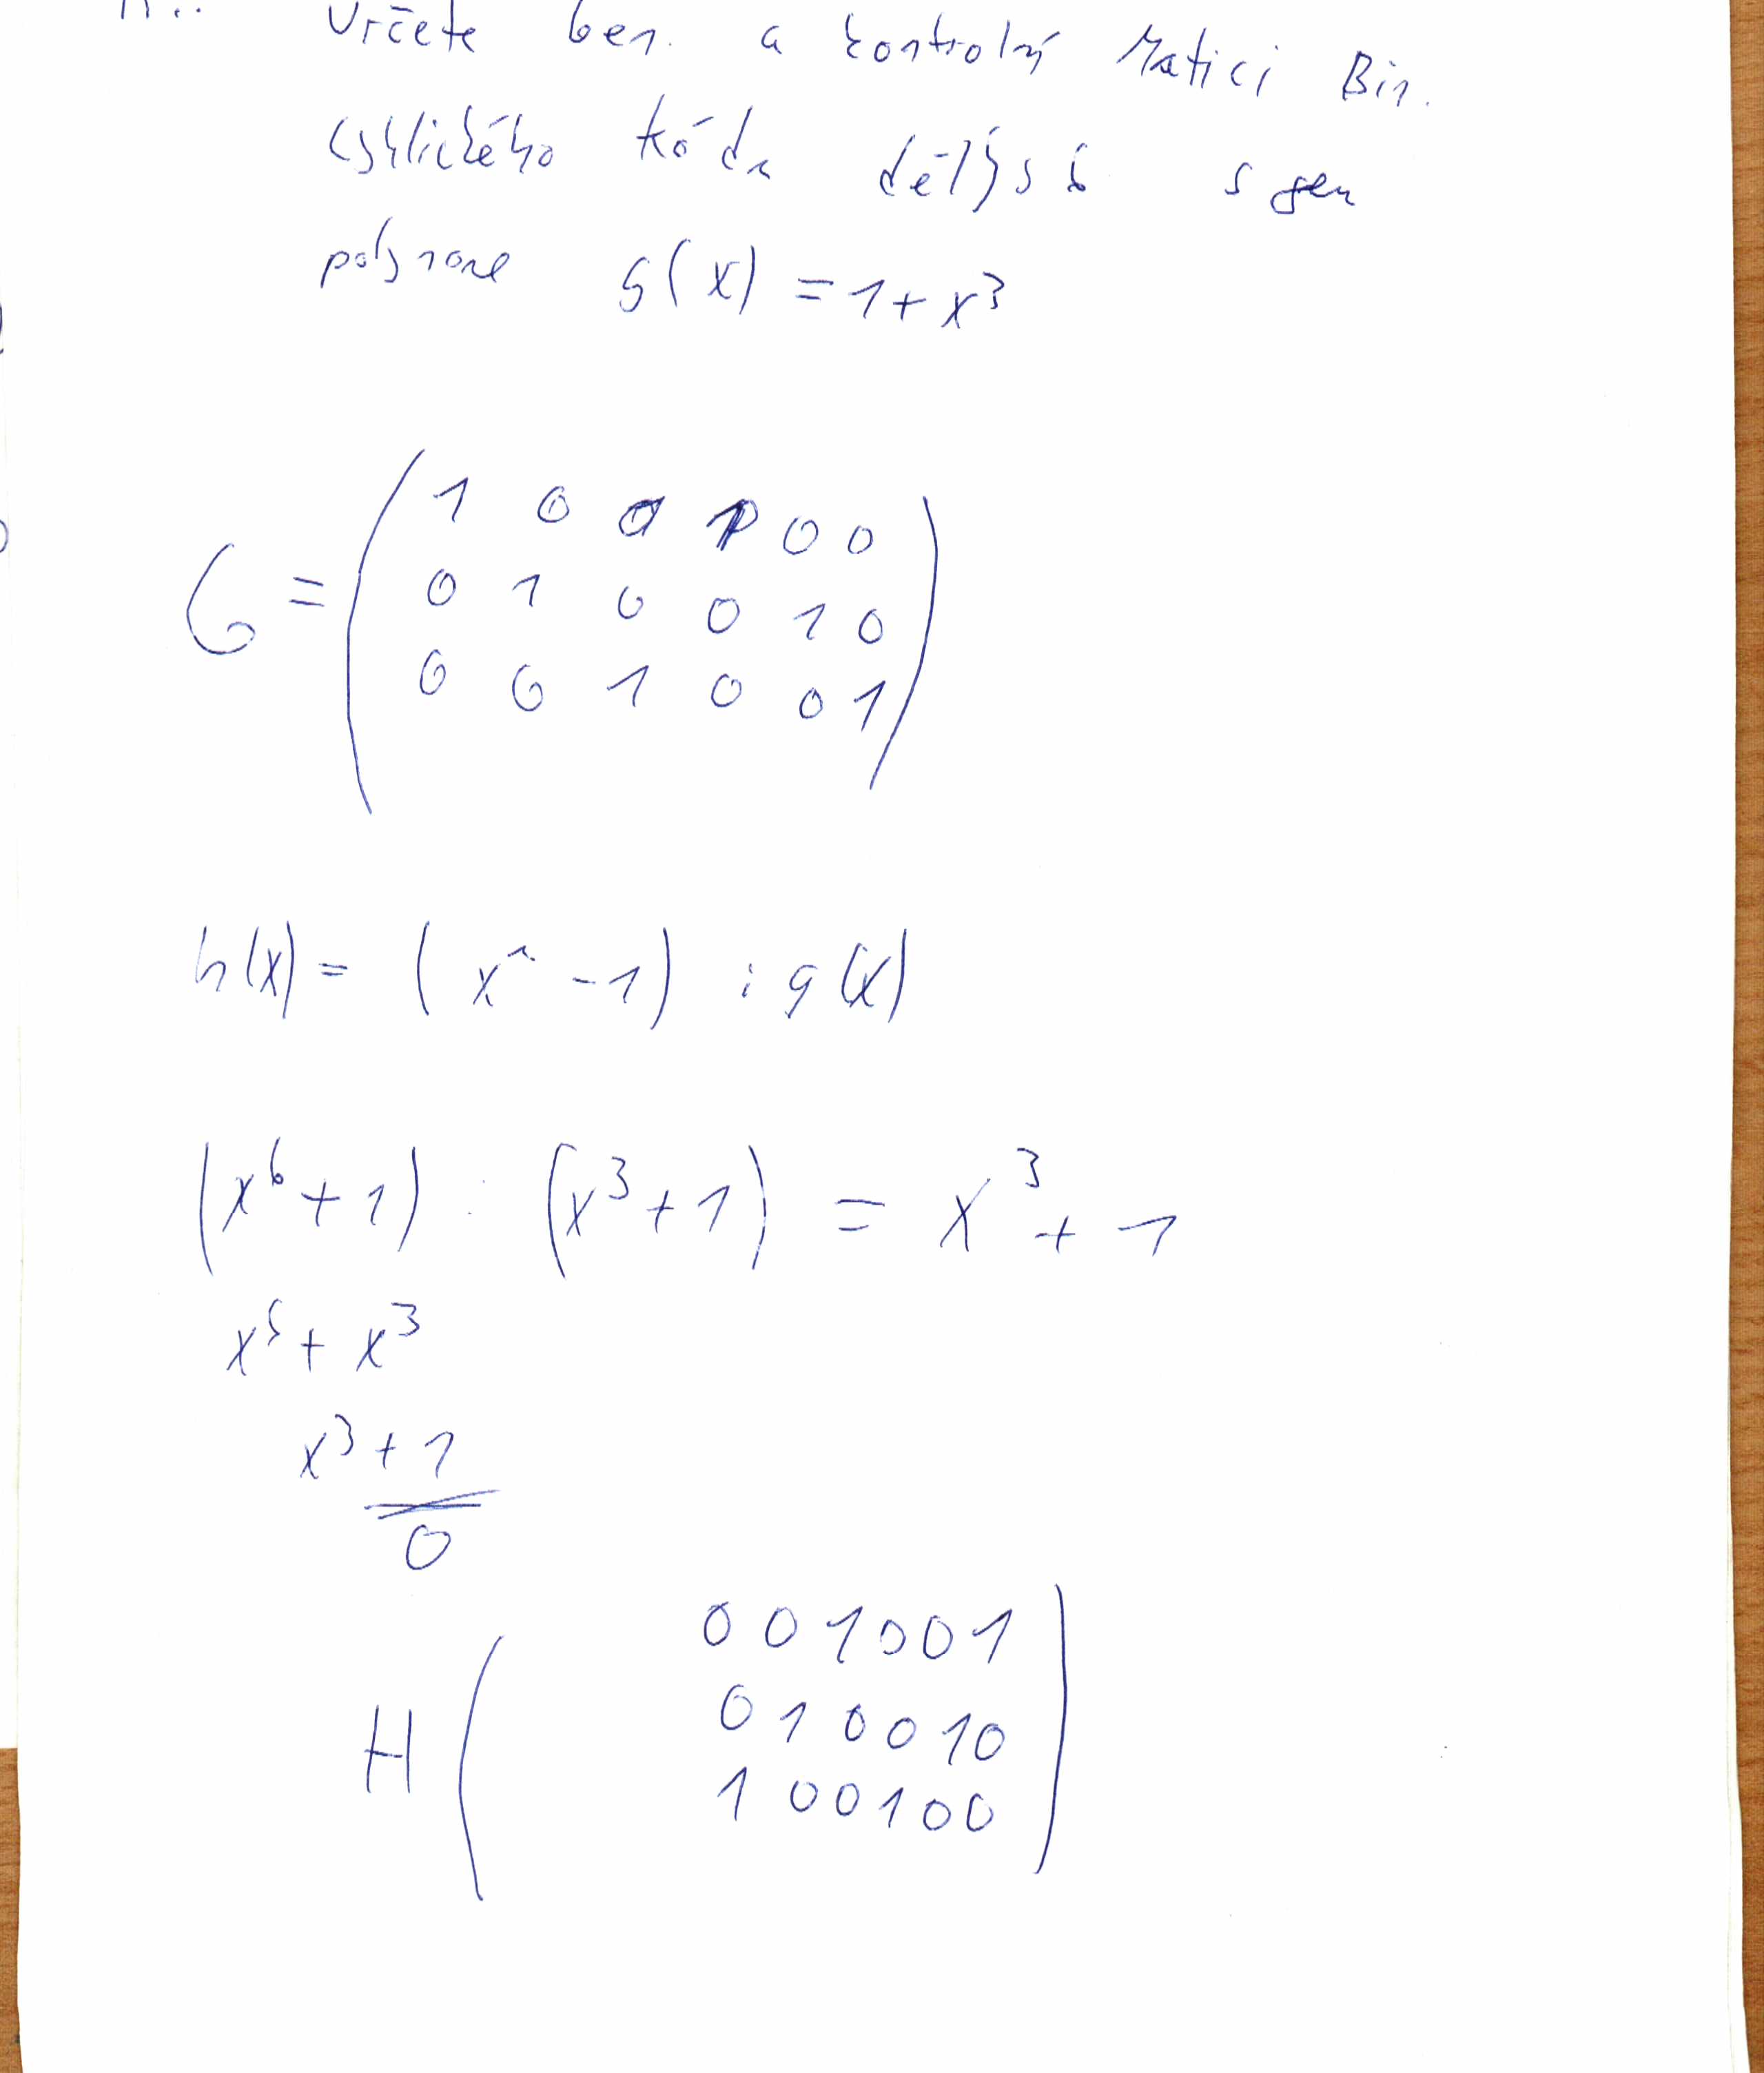 Určete Gen. a kontrolní Matici Bin.
cyklického kódu délky 6 s gen
polynome g(x) = 1 + x³
G = ( 1 0 0 1 0 0
0 1 0 0 1 0
0 0 1 0 0 1 )
h(x) = (xⁿ - 1) : g(x)
(x⁶ + 1) : (x³ + 1) = x³ + 1
x⁶ + x³
x³ + 1
0
H ( 0 0 1 0 0 1
0 1 0 0 1 0
1 0 0 1 0 0 )